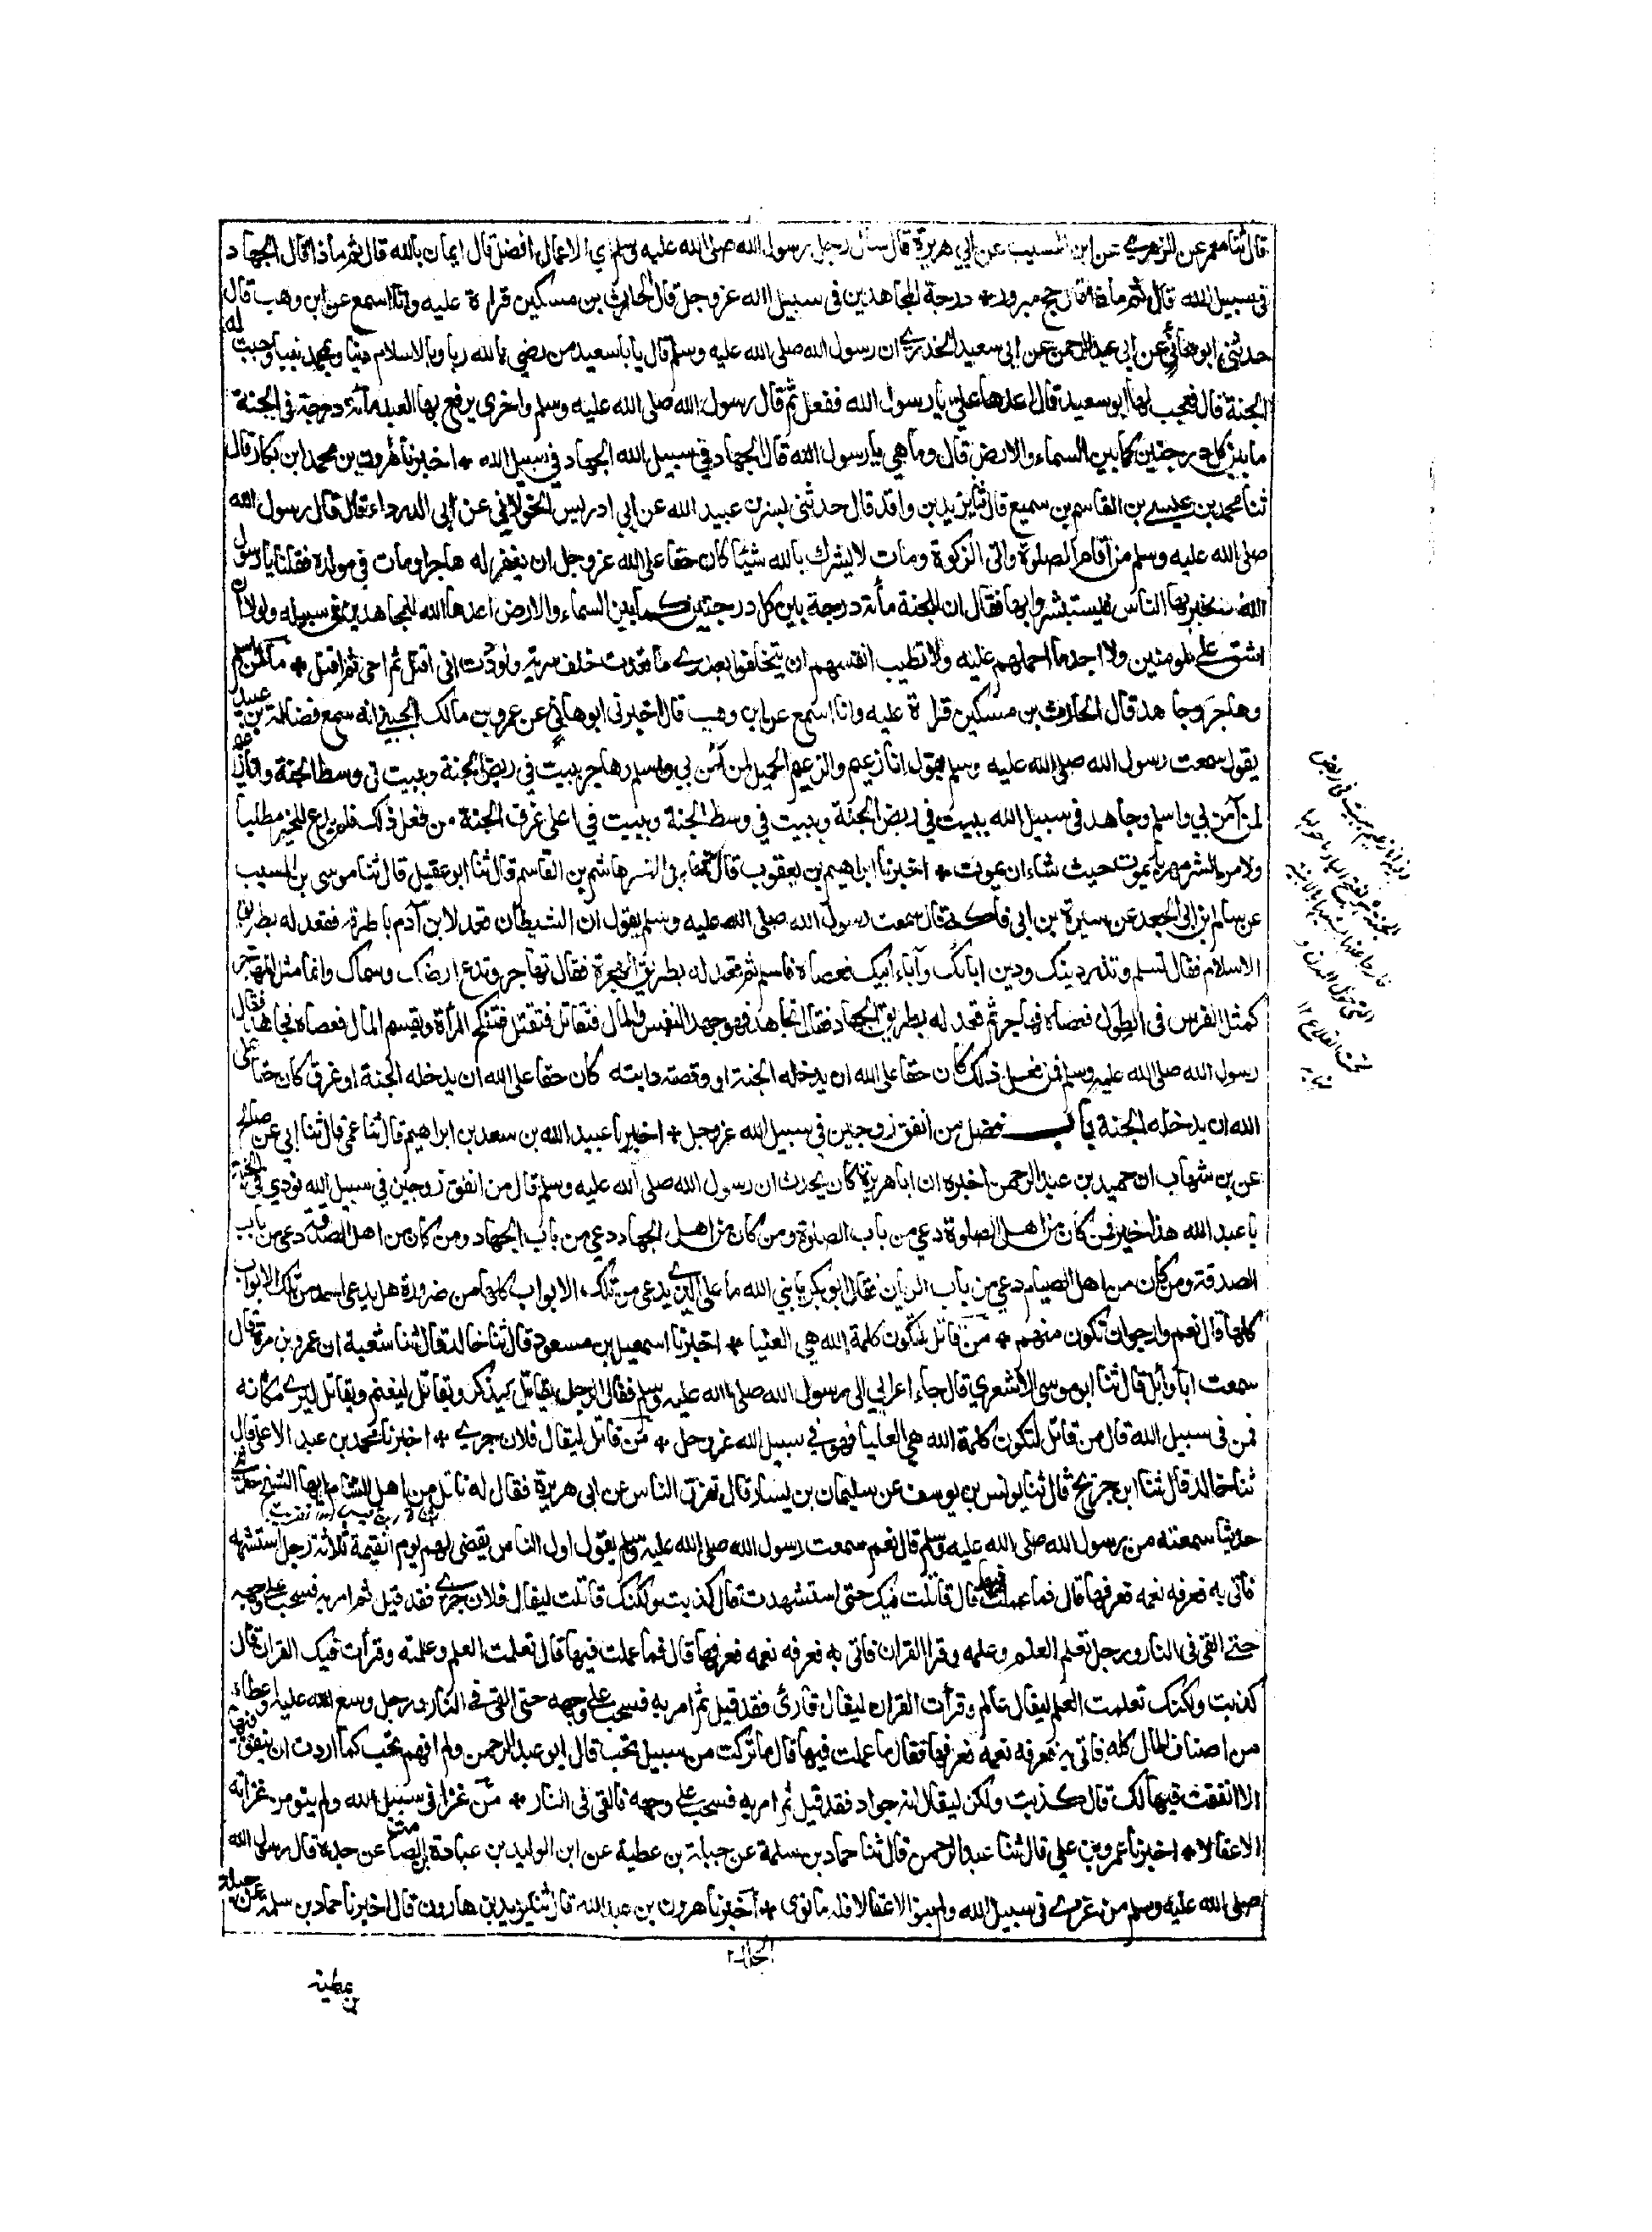 قال ثنا معمر عن الزهري عن ابن المسيب عن ابي هريرة قال سأل رجل رسول الله صلى الله عليه وسلم اي الاعمال افضل قال ايمان بالله قال ثم ماذا قال الجهاد
في سبيل الله قال ثم ماذا قال حج مبرور + درجة المجاهدين في سبيل الله عز وجل قال الحارث بن مسكين قراءة عليه وانا اسمع عن ابن وهب قال
حدثني ابو هانئ عن ابي عبد الرحمن عن ابي سعيد الخدري ان رسول الله صلى الله عليه وسلم قال يا با سعيد من رضي بالله ربا وبالاسلام دينا وبمحمد نبيا وجبت له
الجنة قال فعجب لها ابو سعيد قال اعدها علي يا رسول الله ففعل ثم قال رسول الله صلى الله عليه وسلم واخرى يرفع بها العبد مائة درجة في الجنة
ما بين كل درجتين كما بين السماء والارض قال وما هي يا رسول الله قال الجهاد في سبيل الله الجهاد في سبيل الله + اخبرنا هرون بن محمد ابن بكار قال
ثنا محمد بن عيسى بن القاسم بن سميع قال ثنا يزيد بن واقد قال حدثني بسر بن عبيد الله عن ابي ادريس الخولاني عن ابي الدرداء قال قال رسول الله
صلى الله عليه وسلم من اقام الصلوة واتى الزكوة ومات لا يشرك بالله شيئا كان حقا على الله عز وجل ان يغفر له هاجر او مات في مولده فقلنا يا رسول
الله نخبر بها الناس فيستبشر وابها فقال ان للجنة مائة درجة بين كل درجتين كما بين السماء والارض اعدها الله للمجاهدين في سبيله ولولا ان
اشق على المومنين ولا اجد ما احملهم عليه ولا تطيب انفسهم ان يتخلفوا بعدي ما قعدت خلف سرية ولوددت اني اقتل ثم احى ثم اقتل + ما لمن اسلم
وهاجر وجاهد قال الحارث بن مسكين قراءة عليه وانا اسمع عن ابن وهب قال اخبرني ابو هانئ عن عمرو بن مالك الجنبي انه سمع فضالة بن عبيد
يقول سمعت رسول الله صلى الله عليه وسلم يقول انا زعيم والزعيم الحميل لمن آمن بي واسلم وهاجر ببيت في ربض الجنة وببيت في وسط الجنة وانا زعيم
لمن آمن بي واسلم وجاهد في سبيل الله ببيت في ربض الجنة وببيت في وسط الجنة وببيت في اعلى غرف الجنة من فعل ذلك فلم يدع للخير مطلبا
ولا من الشر مهربا يموت حيث شاء ان يموت + اخبرنا ابراهيم بن يعقوب قال ثنا ابو النضر هاشم بن القاسم قال ثنا ابو عقيل قال ثنا موسى بن المسيب
عن سالم بن ابي الجعد عن سبرة بن ابي فاكه قال سمعت رسول الله صلى الله عليه وسلم يقول ان الشيطان قعد لابن آدم باطرقه فقعد له بطريق
الاسلام فقال تسلم وتذر دينك ودين ابائك وآباء ابيك فعصاه فاسلم ثم قعد له بطريق الهجرة فقال تهاجر وتدع ارضك وسماك وانما مثل المهاجر
كمثل الفرس في الطول فعصاه فهاجر ثم قعد له بطريق الجهاد فقال تجاهد فهو جهد النفس والمال فتقاتل فتقتل فتنكح المرأة ويقسم المال فعصاه فجاهد فقال
رسول الله صلى الله عليه وسلم فمن فعل ذلك كان حقا على الله ان يدخله الجنة او وقصته دابته كان حقا على الله ان يدخله الجنة او غرق كان حقا على
الله ان يدخله الجنة باب فضل من انفق زوجين في سبيل الله عز وجل + اخبرنا عبيد الله بن سعد بن ابراهيم قال ثنا عمي قال ثنا ابي عن صالح
عن بن شهاب ان حميد بن عبد الرحمن اخبره ان ابا هريرة كان يحدث ان رسول الله صلى الله عليه وسلم قال من انفق زوجين في سبيل الله نودي في الجنة
يا عبد الله هذا خير فمن كان من اهل الصلوة دعي من باب الصلوة ومن كان من اهل الجهاد دعي من باب الجهاد ومن كان من اهل الصدقة دعي من باب
الصدقة ومن كان من اهل الصيام دعي من باب الريان فقال ابو بكر يا نبي الله ما على الذي يدعى من تلك الابواب كلها من ضرورة هل يدعى احد من تلك الابواب
كلها قال نعم وارجو ان تكون منهم + من قاتل لتكون كلمة الله هي العليا + اخبرنا اسمعيل بن مسعود قال ثنا خالد قال ثنا شعبة ان عمرو بن مرة قال
سمعت ابا وائل قال ثنا ابو موسى الاشعري قال جاء اعرابي الى رسول الله صلى الله عليه وسلم فقال الرجل يقاتل ليذكر ويقاتل ليغنم ويقاتل ليرى مكانه
فمن في سبيل الله قال من قاتل لتكون كلمة الله هي العليا فهو في سبيل الله عز وجل + من قاتل ليقال فلان جري + اخبرنا محمد بن عبد الاعلى قال
ثنا خالد قال ثنا ابن جريج قال ثنا يونس بن يوسف عن سليمان بن يسار قال تفرق الناس عن ابي هريرة فقال له ناتل من اهل الشام ايها الشيخ حدثني
حديثا سمعته من رسول الله صلى الله عليه وسلم قال نعم سمعت رسول الله صلى الله عليه وسلم يقول اول الناس يقضى لهم يوم القيمة ثلاثة رجل استشهد
فاتى به فعرفه نعمه فعرفها قال فما عملت فيها قال قاتلت فيك حتى استشهدت قال كذبت ولكنك قاتلت ليقال فلان جري فقد قيل ثم امر به فسحب على وجهه
حتى القي في النار ورجل تعلم العلم وعلمه وقرا القران فاتى به فعرفه نعمه فعرفها قال فما عملت فيها قال تعلمت العلم وعلمته وقرأت فيك القران قال
كذبت ولكنك تعلمت العلم ليقال عالم وقرأت القران ليقال قارئ فقد قيل ثم امر به فسحب على وجهه حتى القي في النار ورجل وسع الله عليه واعطاه
من اصناف المال كله فاتى به فعرفه نعمه فعرفها فقال ما عملت فيها قال ما تركت من سبيل تحب قال ابو عبد الرحمن ولم افهم تحب كما اردت ان ينفق فيها
الا انفقت فيها لك قال كذبت ولكن ليقال انه جواد فقد قيل ثم امر به فسحب على وجهه فالقي في النار + من غزا في سبيل الله ولم ينو من غزاته
الا عقالا + اخبرنا عمرو بن علي قال ثنا عبد الرحمن قال ثنا حماد بن سلمة عن جبلة بن عطية عن ابن الوليد بن عبادة بن الصامت عن جده قال رسول الله
صلى الله عليه وسلم من غزى في سبيل الله ولم ينو الا عقالا فله ما نوى + اخبرنا هرون بن عبد الله قال ثنا يزيد بن هارون قال اخبرنا حماد بن سلمة عن جبلة
بن عطية